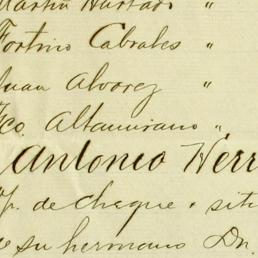 Martin Hurtado "
Fortino Cabrales "
Juan Alvarez "
Fco. Altamirano "
Antonio Herr
de cheque
su hermano Dn.